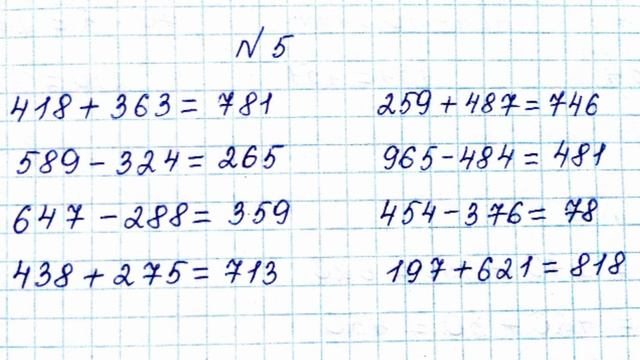 N 5
418 + 363 = 781 259 + 487 = 746
589 - 324 = 265 965 - 484 = 481
647 - 288 = 359 454 - 376 = 78
438 + 275 = 713 197 + 621 = 818